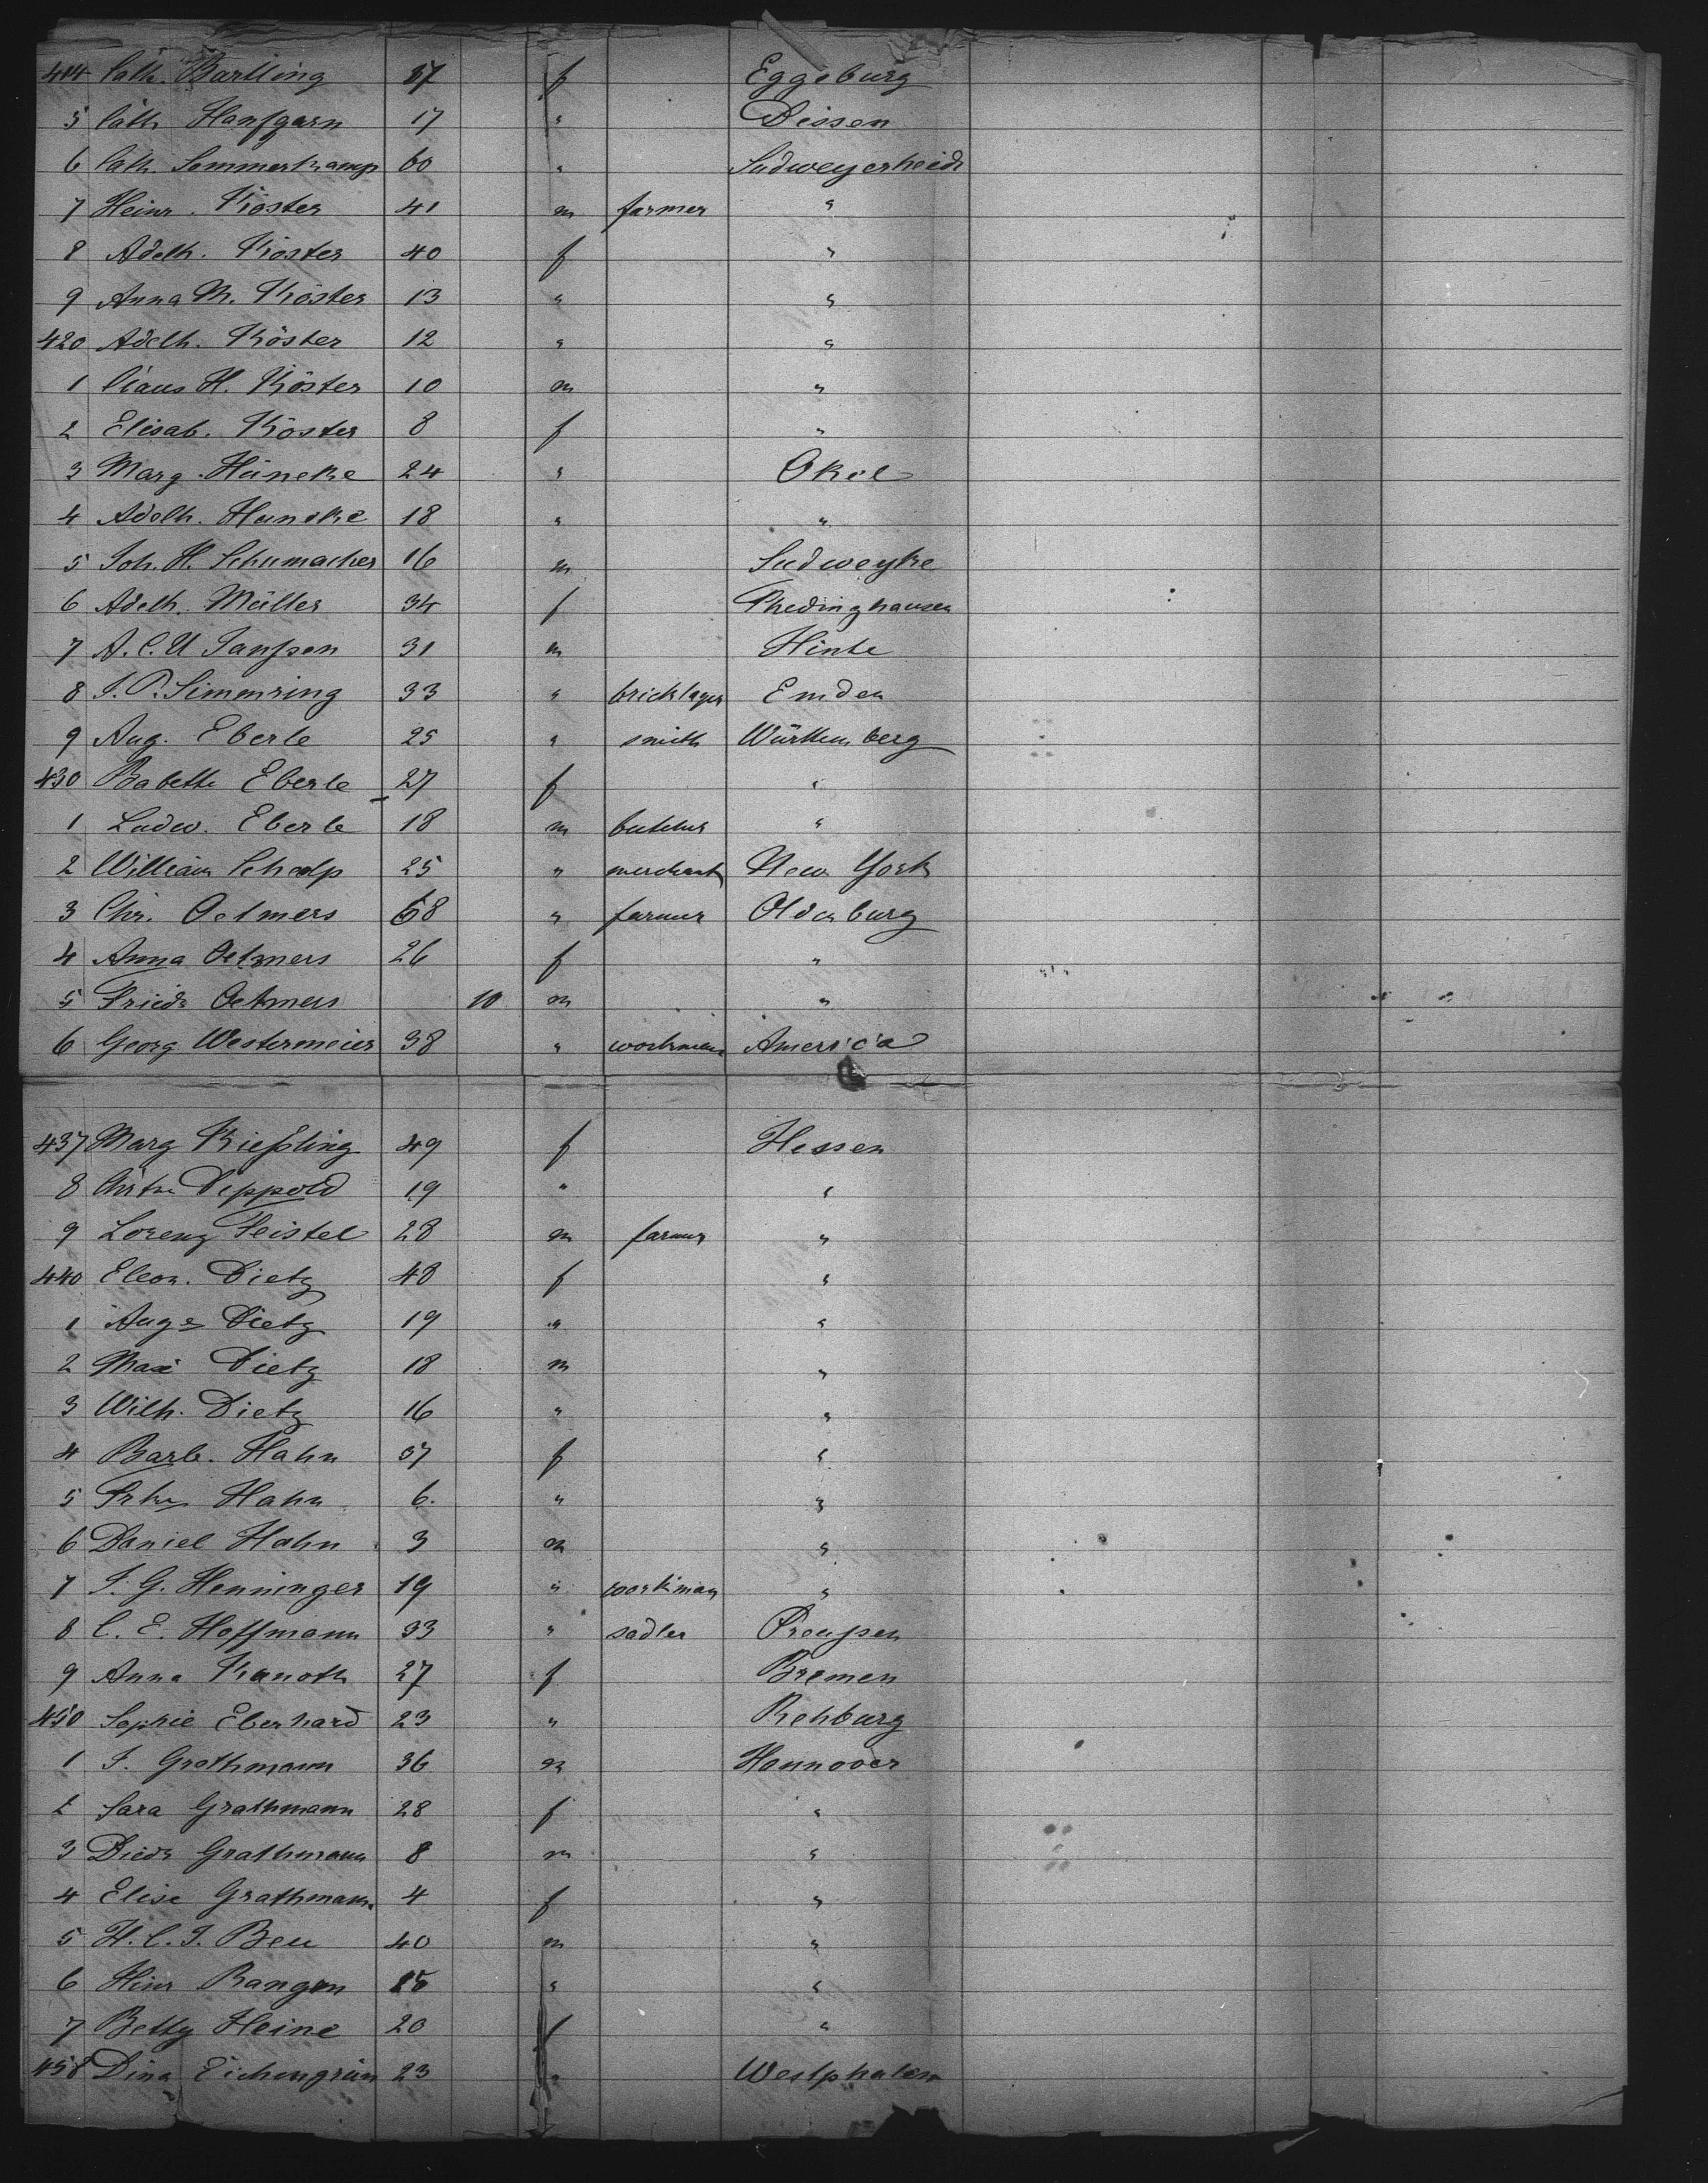 414 Cath. Bartling 57 f Eggeburg
5 Cath Hanfgarn 17 " Dissen
6 Cath. Sommerkamp 60 " Sudweyerheide
7 Heinr. Köster 41 m farmer "
8 Adelh. Köster 40 f "
9 Anna M. Köster 13 " "
420 Adelh. Köster 12 " "
1 Claus H. Köster 10 m "
2 Elisab. Köster 8 f "
3 Marg. Hüneke 24 " Okel
4 Adelh. Huneke 18 " "
5 Joh. H. Schumacher 16 m Sudweyhe
6 Adelh. Müller 34 f Thedinghausen
7 A. C. U Janssen 31 m Hinte
8 J. P. Simmring 33 " bricklayer Emden
9 Aug. Eberle 25 " smith Württemberg
430 Babette Eberle 27 f "
1 Ludw. Eberle 18 m butcher "
2 William Schalp 25 " merchant New York
3 Chr. Oetmers 68 " farmer Oldenburg
4 Anna Oetmers 26 f "
5 Friedr Oetmers 10 m "
6 Georg Westermeier 38 " workman America
437 Marg Kießling 49 f Hessen
8 Dippold 19 " "
9 Lorenz Feistel 28 m farmer "
440 Eleon. Dietz 48 f "
1 Auge Dietz 19 " "
2 Max Dietz 18 m "
3 Wilh. Dietz 16 " "
4 Barb. Hahn 37 f "
5 Hahn 6. " "
6 Daniel Hahn 3 m "
7 J. G. Henninger 19 " workman "
8 C. E. Hoffmann 33 " sadler Preußen
9 Anna Kanoth 27 f Bremen
450 Sophie Eberhard 23 " Rehburg
1 J. Grathmann 36 m Hannover
2 Sara Grathmann 28 f "
3 Diedr Grathmann 8 m "
4 Elise Grathmann 4 f "
5 H. C. J. Beu 40 m "
6 Hinr Rangen 15 " "
7 Betty Heine 20 f "
458 Dina Eichengrün 23 " Westphalen